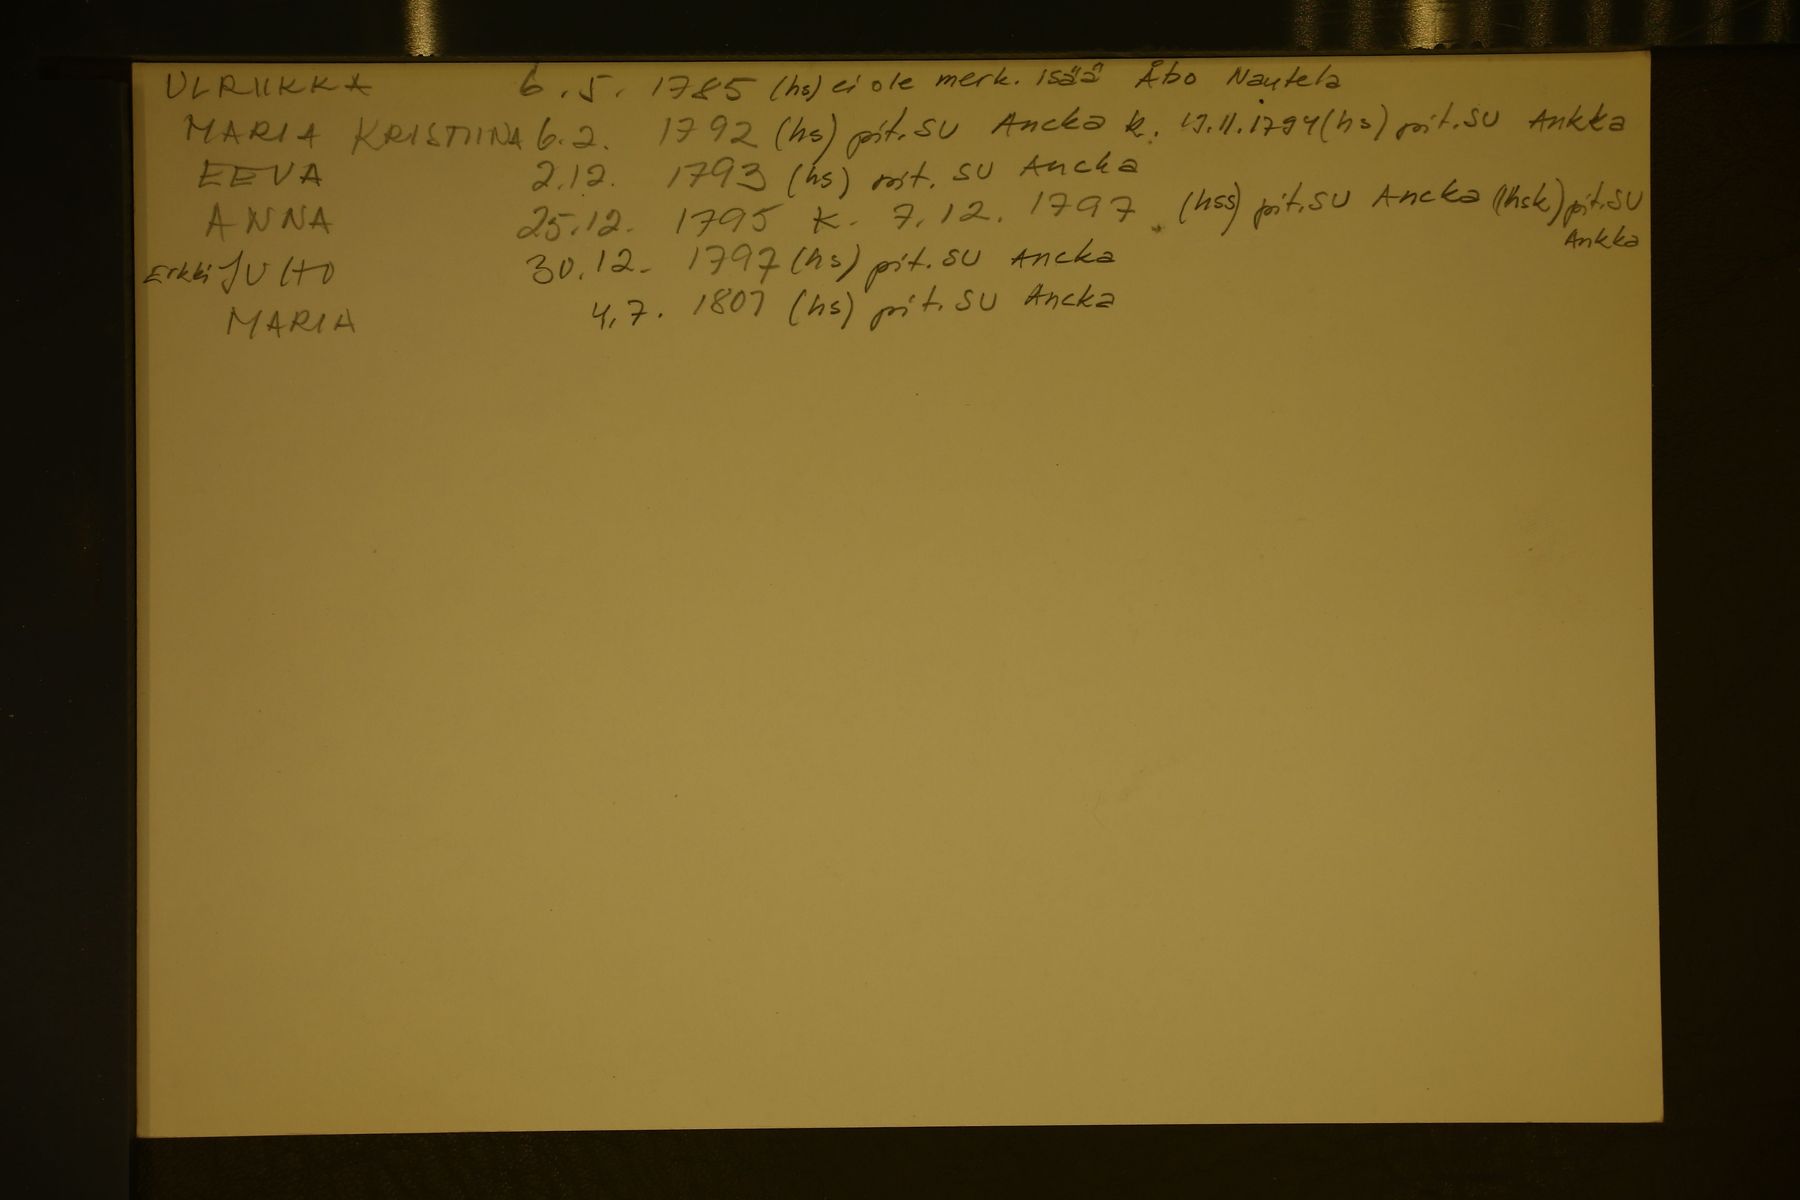 ULRIIKKA 6.5. 1785 (hs) ei ole merk. isää Åbo Nautela
MARIA KRISTIINA 6.2. 1792 (hs) pit. SU Ancka k. 19.11.1794 (hs) pit. SU Ankka
EEVA 2.12. 1793 (hs) pit. SU Ancka
ANNA 25.12. 1795 k. 7.12. 1797 (hss) pit. SU Ancka (hsk) pit. SU
Ankka
Erkki JUHO 30.12. 1797 (hs) pit. SU Ancka
MARIA 4.7. 1807 (hs) pit. SU Ancka